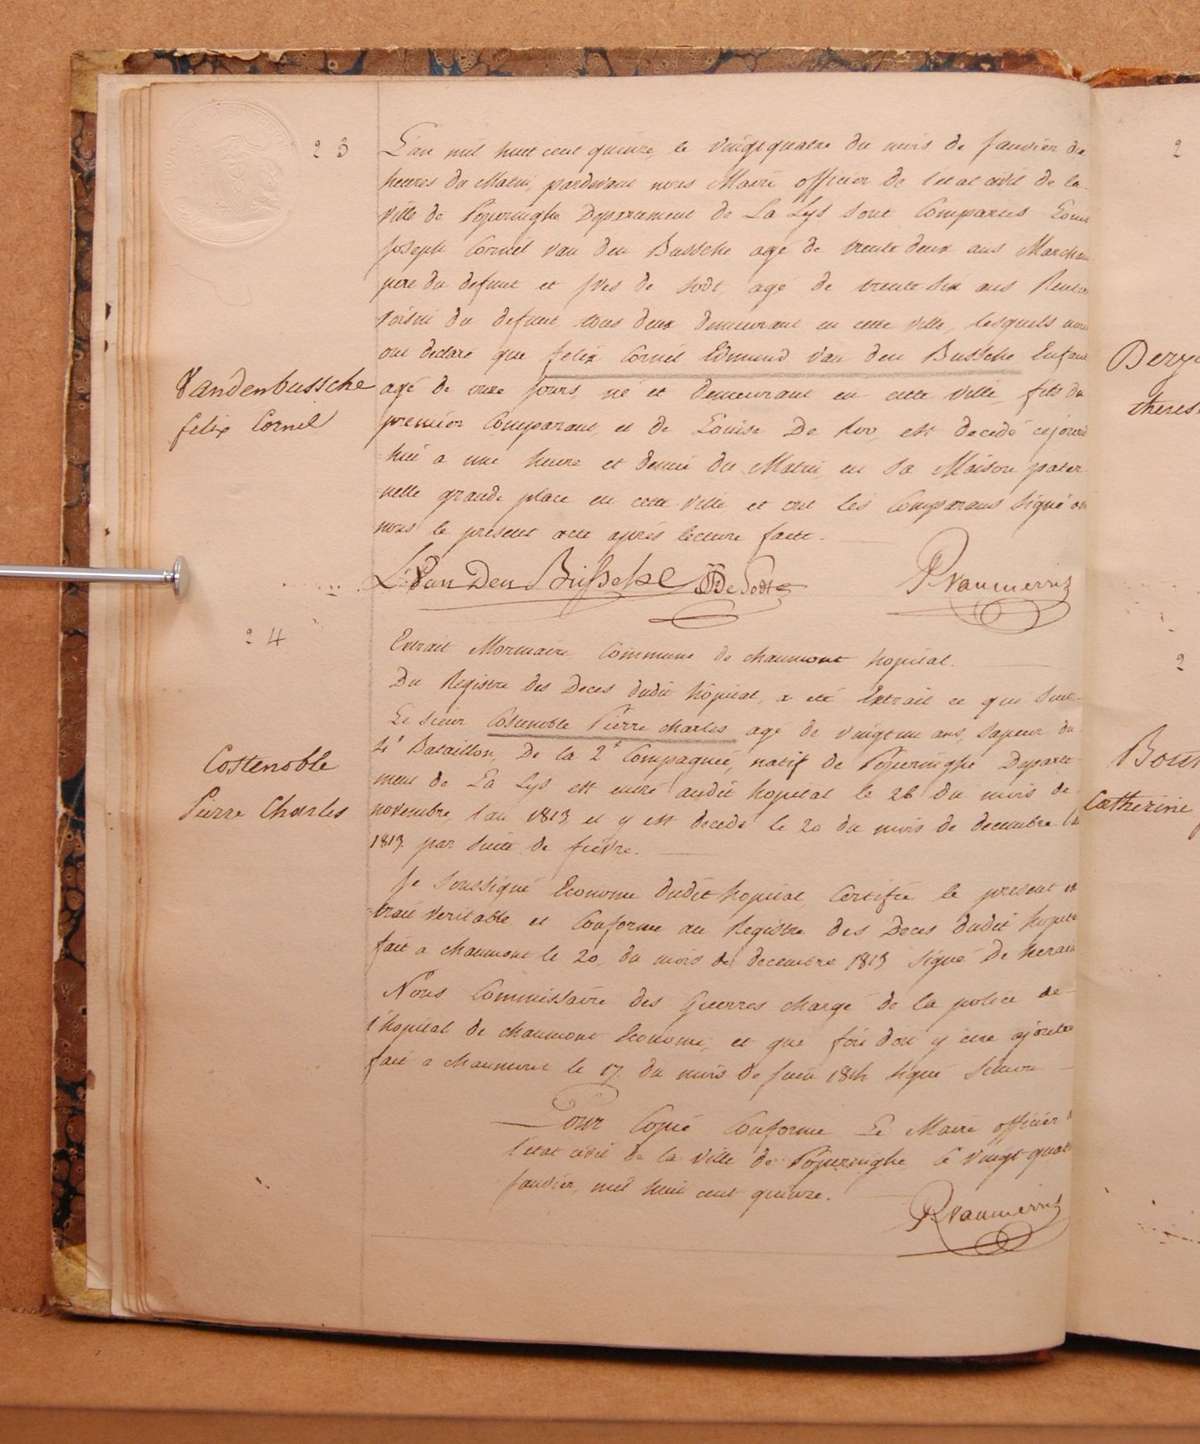 23
L'an mil huit cent quinze, le vingt quatre du mois de Janvier
heures du Matin, pardevant nous Maire officier de l'etat civil de la
ville de Poperinghe Departement de La Lys sont Comparus Louis
Joseph Cornil Van den Bussche agé de trente deux ans Marchan
pere du defunt et de Sodt agé de trente six ans
voisin du defunt tous deux demeurant en cette ville, lesquels nous
ont declaré que felix Cornil Edmund Van den Bussche Enfant
Vandenbussche
felix Cornil
agé de onze jours né et demeurant en cette ville, fils du
premier Comparant, et de Louise De Roo, est decedé cejourd
hui a une heure et demie du Matin en sa Maison pater
nelle grande place en cette ville et ont les Comparans signé
nous le present acte après lecture faite.
L: Van Den Bussche De Sodt PVanmerris
24
Extrait Mortuaire Commune de chaumont hopital.
Du Registre des Deces dudit hôpital, a eté Extrait ce qui suit
Le sieur Costenoble Pierre charles agé de vingt un ans, sapeur du
4e Bataillon, De la 2e Compagnie, natif de Poperinghe Departe
Costenoble
Pierre Charles
ment de La Lys est entré audit hopital le 26 du mois de
novembre l'an 1813 et y est decedé le 20 du mois de decembre
1813 par suite de fievre.
Je soussigné Econome dudit hopital Certifie le present ex
trait veritable et Conforme au Registre des Deces dudit hopital
fait a chaumont le 20 du mois de decembre 1813 signé
Nous Commissaire des Guerres chargé de la police de
l'hopital de chaumont Econome, et que foi doit y etre ajoutée
fait a chaumont le 17 du mois de Juin 1814 signé
Pour Copie Conforme Le Maire officier
l'etat civil de la ville de Poperinghe le vingt quat
Janvier, mil huit cent quinze.
PVanmerris
2
2
Catherine